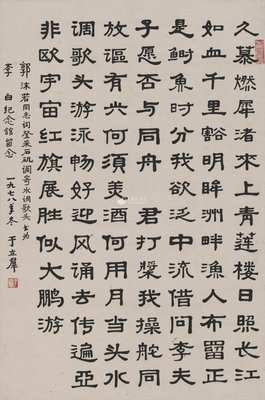 久慕燃犀渚来上青莲楼日照长江
如血千里豁明眸洲畔渔人布留正
是鲥鱼时分我欲泛中流借问李夫
子愿否与同舟 君打桨我操舵同
放讴有兴何须美酒何用月当头水
调歌头游泳畅好迎风诵去传遍亚
非欧宇宙红旗展胜似大鹏游
郭沫若同志词登采石矶调寄水调歌头 书为
李白纪念馆留念 一九七八年冬 于立群